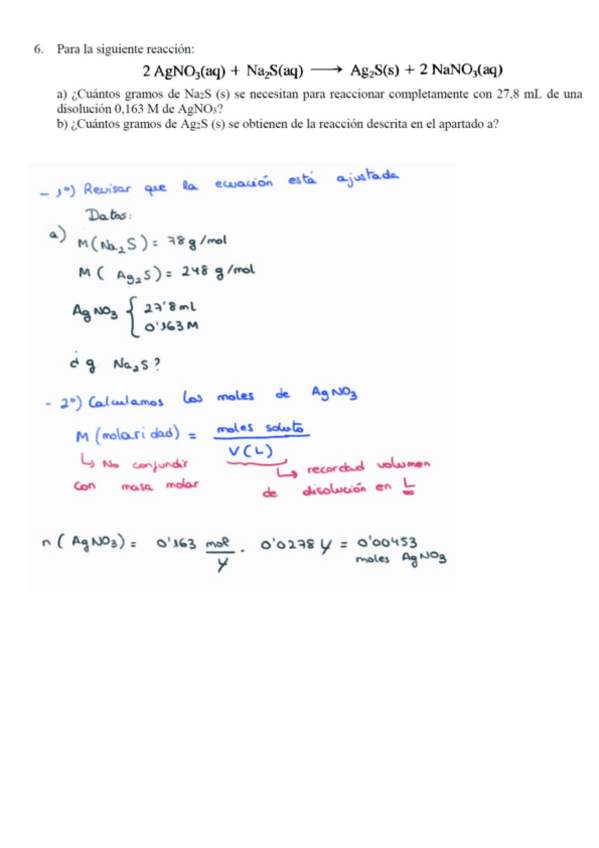 6. Para la siguiente reacción:
2 AgNO₃(aq) + Na₂S(aq) ⟶ Ag₂S(s) + 2 NaNO₃(aq)
a) ¿Cuántos gramos de Na₂S (s) se necesitan para reaccionar completamente con 27,8 mL de una
disolución 0,163 M de AgNO₃?
b) ¿Cuántos gramos de Ag₂S (s) se obtienen de la reacción descrita en el apartado a?
- 1º) Revisar que la ecuación está ajustada
Datos:
a) M(Na₂S) = 78 g/mol
M( Ag₂S) = 248 g/mol
AgNO₃ { 27'8 mL
0'163 M
¿ g Na₂S?
- 2º) Calculamos los moles de AgNO₃
M (molaridad) = moles soluto / V(L)
↳ No confundir con masa molar
↳ recordad volumen de disolución en L
n ( AgNO₃) = 0'163 mol/L · 0'0278 L = 0'00453 moles AgNO₃